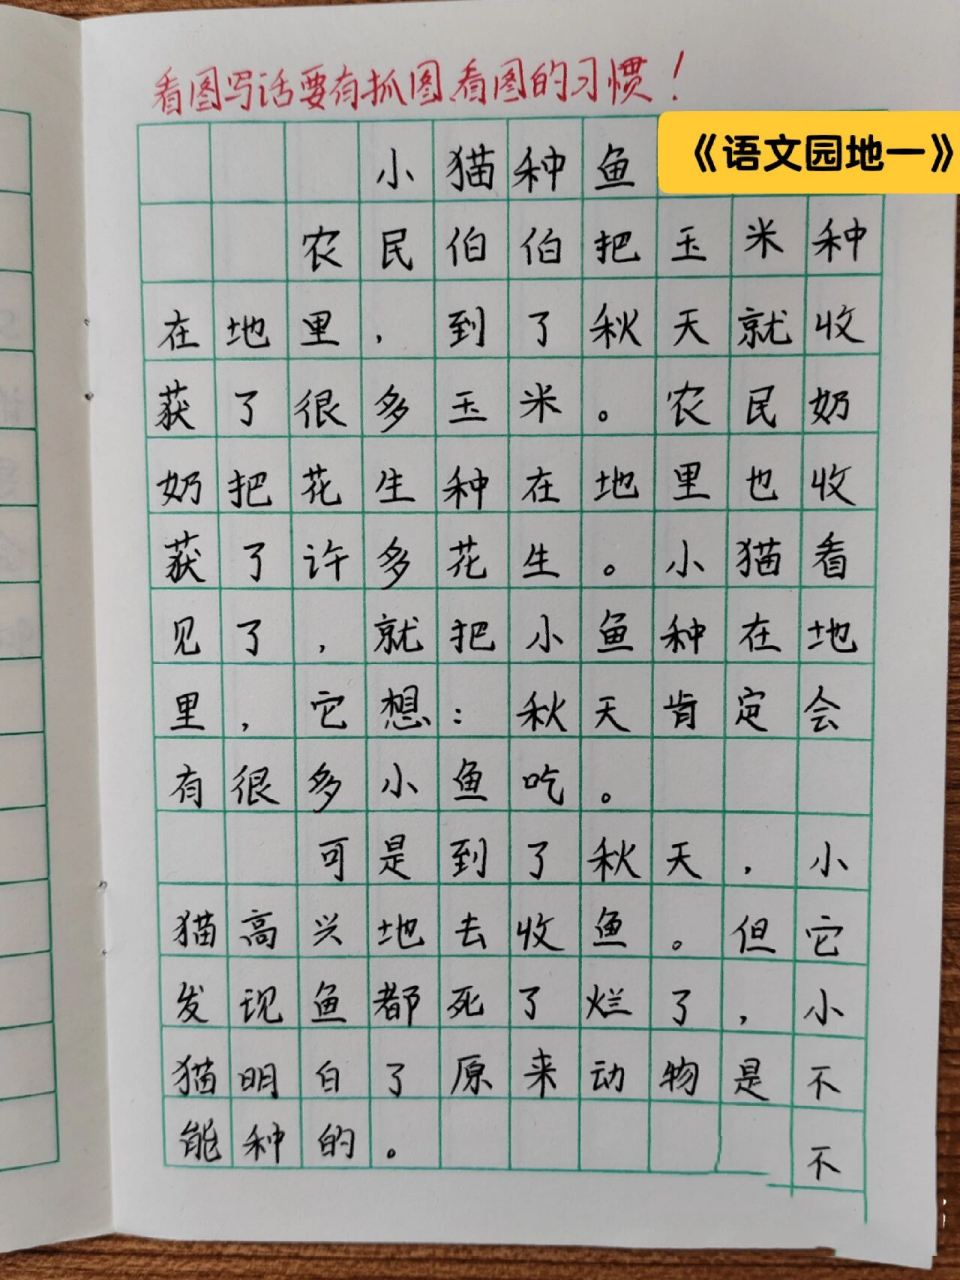 看图写话要有抓图、看图的习惯！
《语文园地一》
小猫种鱼
农民伯伯把玉米种
在地里，到了秋天就收
获了很多玉米。农民奶
奶把花生种在地里也收
获了许多花生。小猫看
见了，就把小鱼种在地
里，它想：秋天肯定会
有很多小鱼吃。
可是到了秋天，小
猫高兴地去收鱼。但它
发现鱼都死了烂了，小
猫明白了原来动物是不
能种的。
不